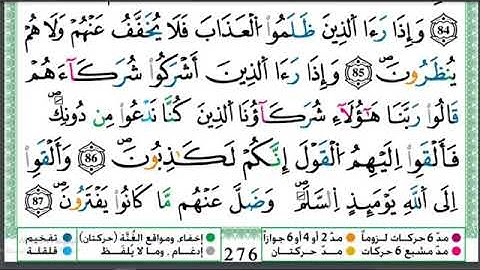 84 وَإِذَا رَءَا الَّذِينَ ظَلَمُوا الْعَذَابَ فَلَا يُخَفَّفُ عَنْهُمْ وَلَا هُمْ
يُنظَرُونَ 85 وَإِذَا رَءَا الَّذِينَ أَشْرَكُوا شُرَكَآءَهُمْ
قَالُوا رَبَّنَا هَٰٓؤُلَآءِ شُرَكَآؤُنَا الَّذِينَ كُنَّا نَدْعُوا مِن دُونِكَ
فَأَلْقَوْا إِلَيْهِمُ الْقَوْلَ إِنَّكُمْ لَكَٰذِبُونَ 86 وَأَلْقَوْا
إِلَى اللَّهِ يَوْمَئِذٍ السَّلَمَ وَضَلَّ عَنْهُم مَّا كَانُوا يَفْتَرُونَ 87
مدّ 6 حركات لزوماً مدّ 2 أو 4 أو 6 جوازاً 276 إخفاء، ومواقع الغُنَّة (حركتان) تفخيم
مدّ مشبع 6 حركات مدّ حركتان إدغام، وما لا يُلفَظ قلقلة